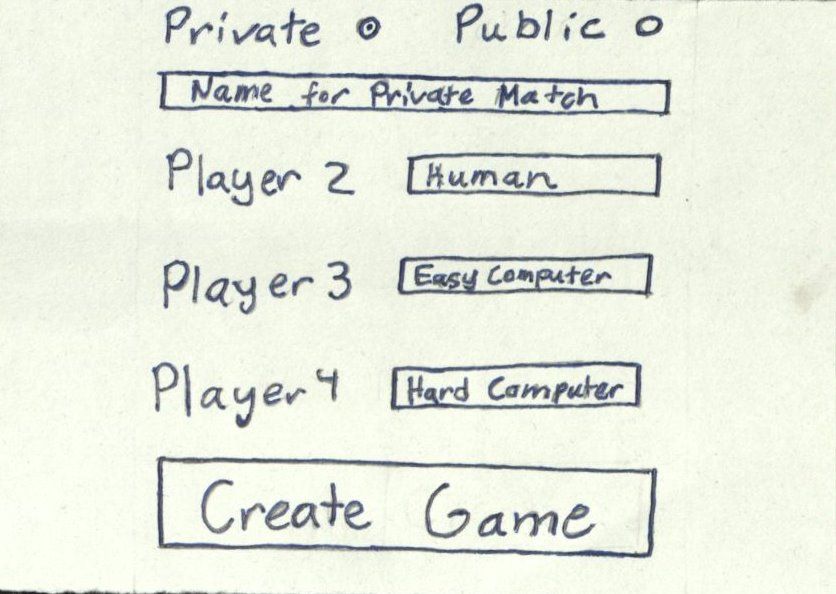 Private Public
Name for Private Match
Player 2 Human
Player 3 Easy Computer
Player 4 Hard Computer
Create Game